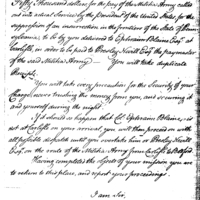 Fifty Thousand dollars for the pay of the Militia Army called
out into actual Service by the President of the United States for the
suppression of an insurrection on the frontiers of the State of Penn
sylvania; to be by you delivered to Ephraim Blaine Esqr. at
Carlisle, in order to be paid to Presley Nevill Esqr. the paymaster
of the said Militia Army. You will take duplicate
Receipts.
You will take every precaution for the Security of your
Charge, never trusting the money from you, and securing it
and yourself during the night.
If it should so happen that Cl. Ephraim Blaine, is
not at Carlisle on your arrival, you will then proceed on with
all possible dispatch until you overtake him or Presley Nevill
Esqr. on the route of the Militia Army from Carlisle to Bedford.
Having completed the object of your mission you are
to return to this place, and report your proceedings.
I am Sir,